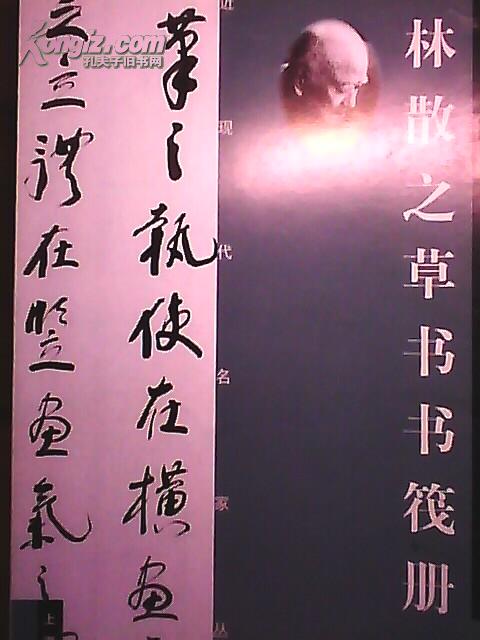 Kongfz.com
孔夫子旧书网
林散之草书书筏册
近现代名家丛
筆之執使在橫畫
之立體在豎畫氣之
上